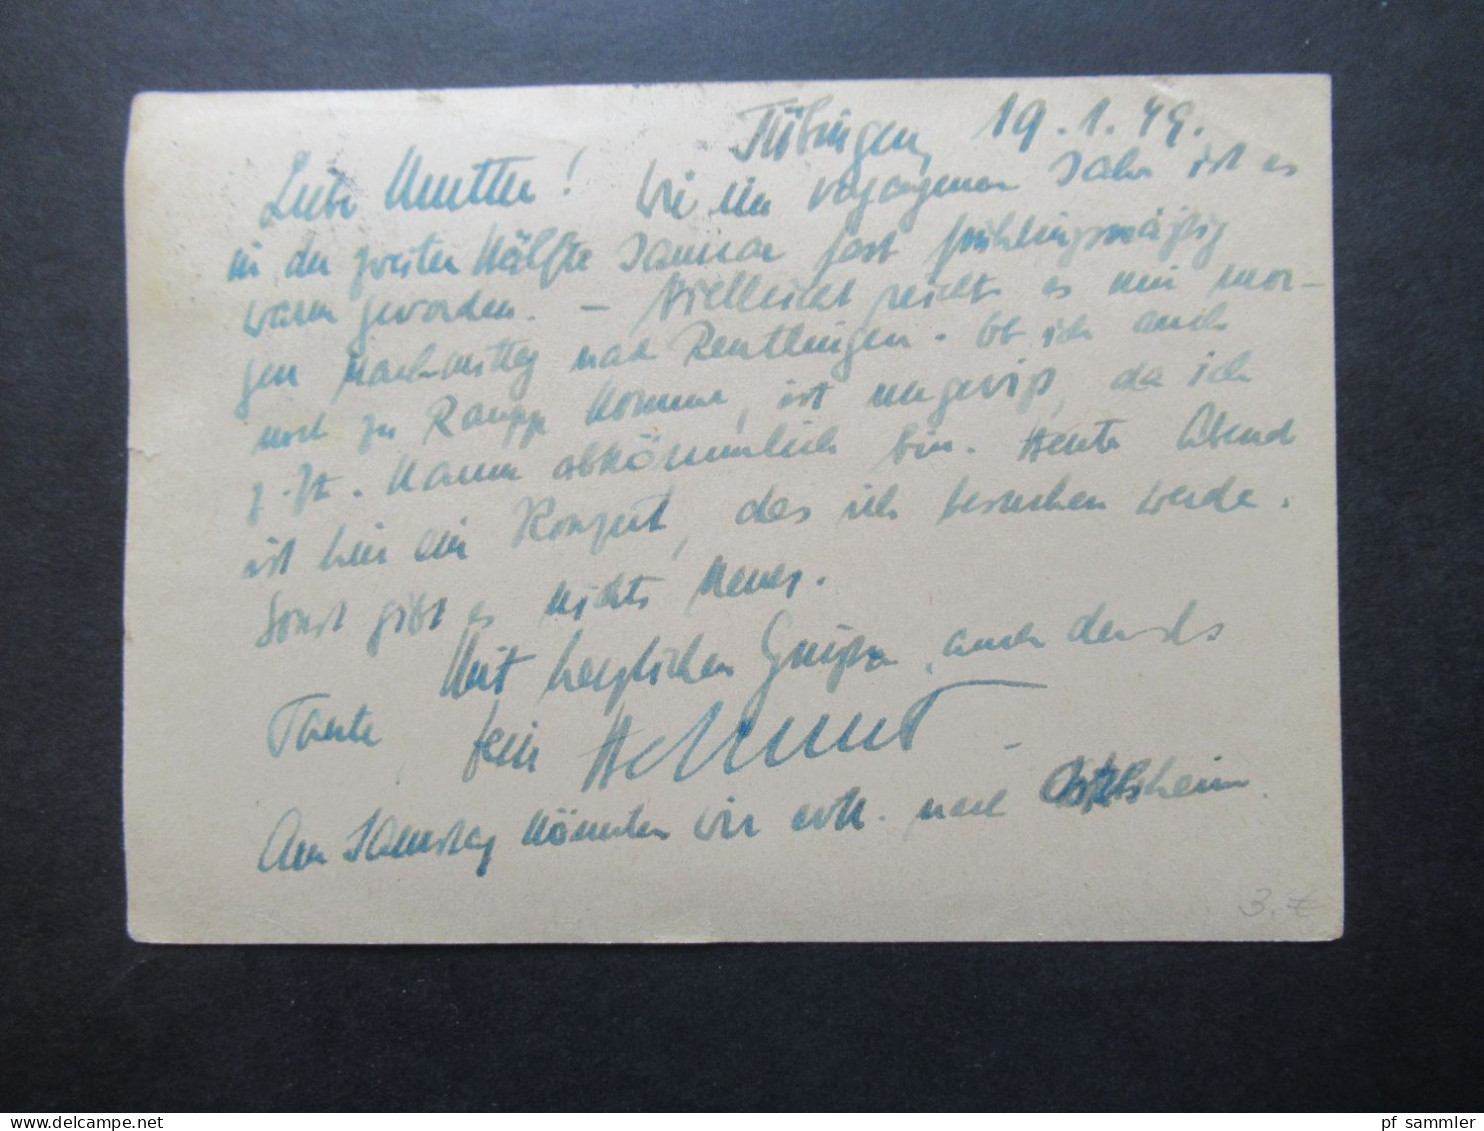 Tübingen, 19.1.49.
Liebe Mutter! Wie im vergangenen Jahr ist es
in der zweiten Hälfte Januar fast frühlingsmäßig
warm geworden. – Vielleicht reicht es mir mor-
gen Nachmittag nach Reutlingen. Ob ich auch
noch zu Raupp komme, ist ungewiß, da ich
z. Zt. kaum abkömmlich bin. Heute Abend
ist hier ein Konzert, das ich besuchen werde.
Sonst gibt es nichts Neues.
Mit herzlichen Grüßen, auch an
Tante Dein Helmut
Am Samstag könnten wir evtl. nach
3.-€
pf_sammler